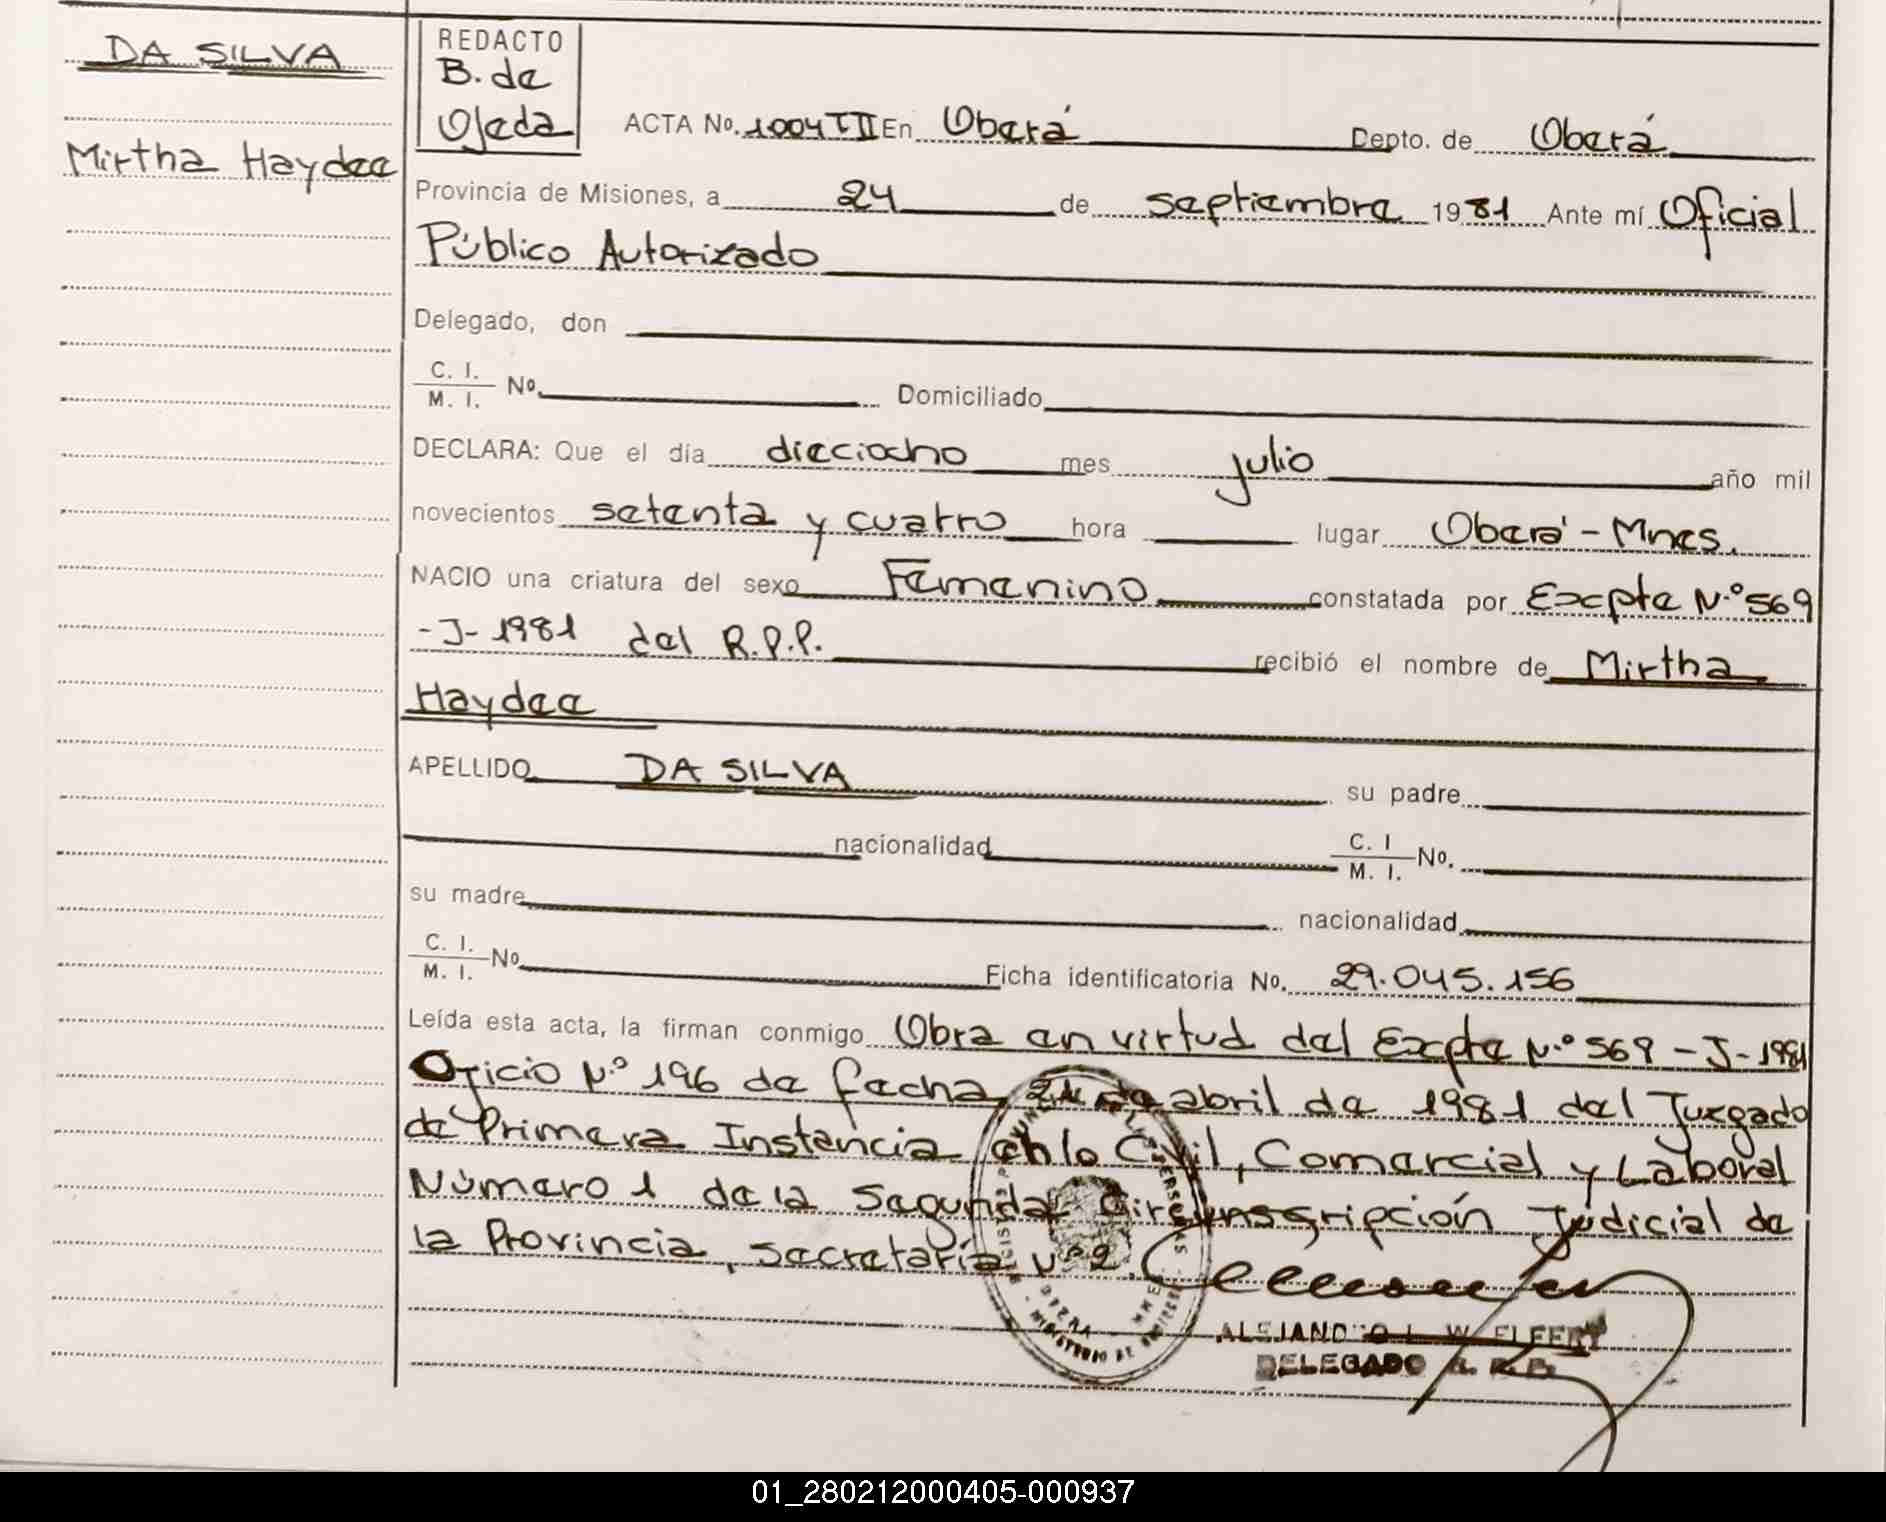 DA SILVA
Mirtha Haydee
REDACTO
B. de
Ojeda
ACTA No. 1004 T II En Oberá Depto. de Oberá
Provincia de Misiones, a 24 de septiembre 1981 Ante mí Oficial
Público Autorizado
Delegado, don
C. I.
M. I. No. Domiciliado
DECLARA: Que el día dieciocho mes julio año mil
novecientos setenta y cuatro hora lugar Oberá - Mnes.
NACIO una criatura del sexo Femenino constatada por Expte N.º 569
-J- 1981 del R.P.P. recibió el nombre de Mirtha
Haydee
APELLIDO DA SILVA su padre
nacionalidad C. I
M. I. No.
su madre nacionalidad
C. I.
M. I. No Ficha identificatoria No. 29.045.156
Leída esta acta, la firman conmigo Obra en virtud del Expte N.º 569 - J - 1981
Oficio N.º 196 de fecha de abril de 1981 del Juzgado
de Primera Instancia en lo Civil, Comercial y Laboral
Número 1 de la Segunda Circunsgripción Judicial de
la Provincia, secretaría Nº 2.
ALEJANDRO L. W. ELFERT
DELEGADO R. P.
01_280212000405-000937